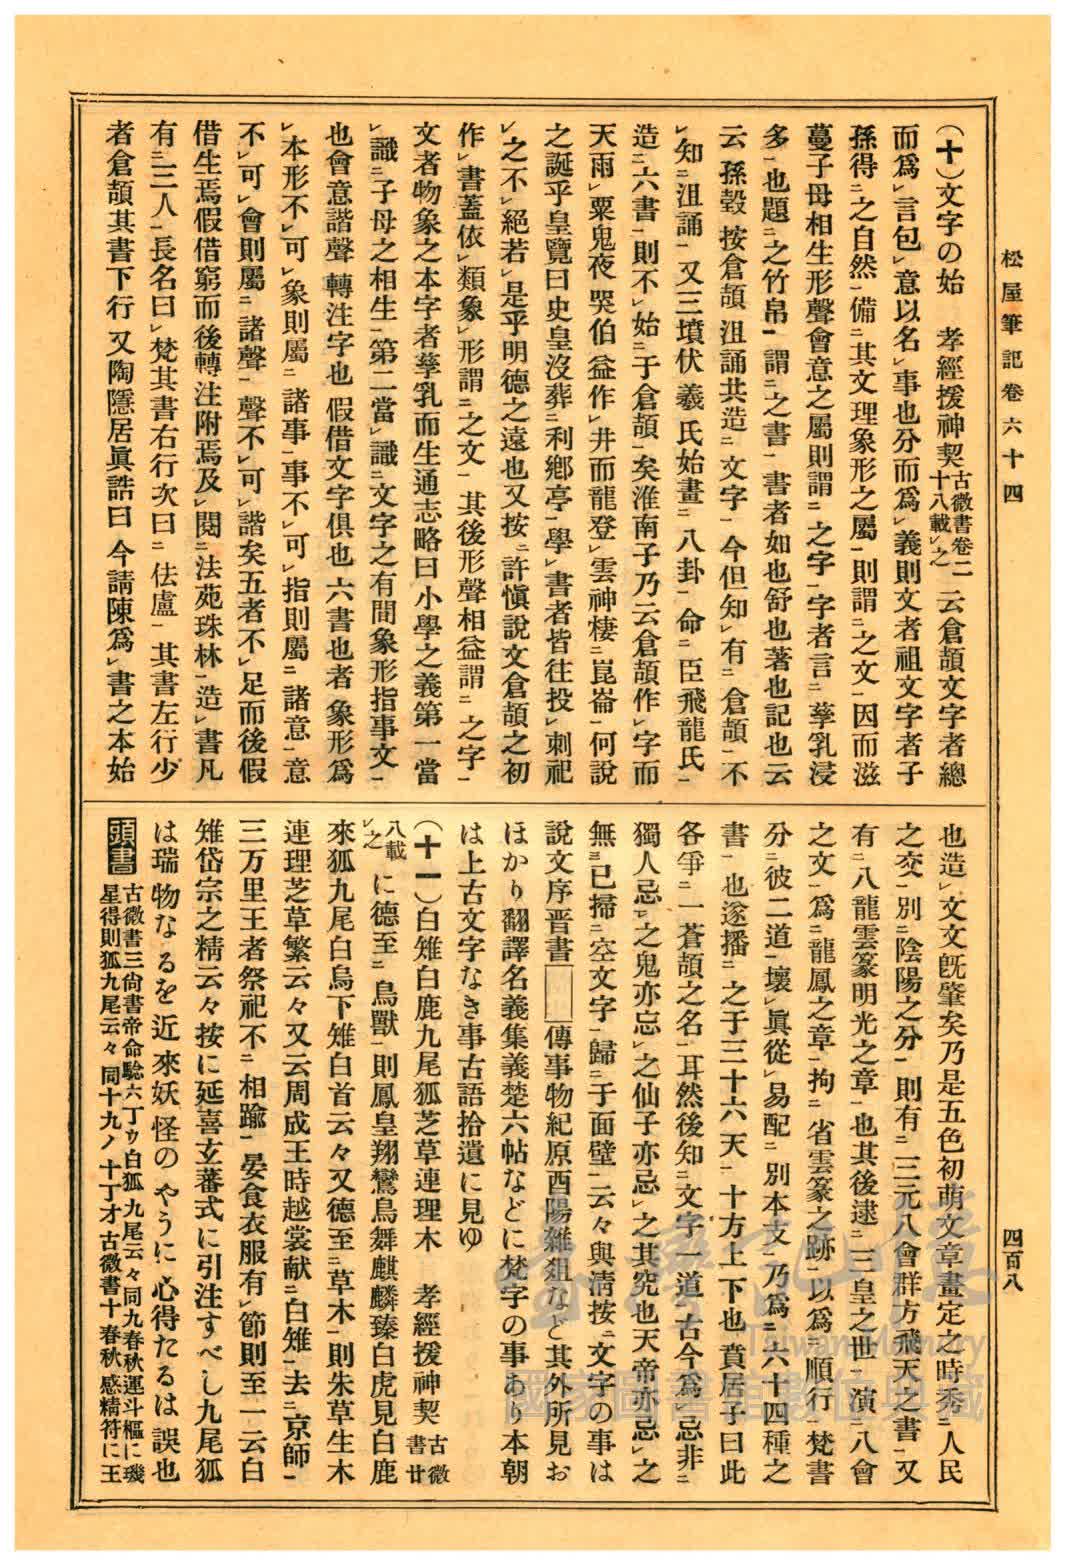 松屋筆記卷六十四
四百八
(十)文字の始 孝經援神契古微書卷二十八載㆑之云倉頡文字者總
而爲㆑言包㆑意以名㆑事也分而爲㆑義則文者祖文字者子
孫得㆓之自然㆒備㆓其文理象形之屬㆒則謂㆓之文㆒因而滋
蔓子母相生形聲會意之屬則謂㆓之字㆒字者言㆓孳乳浸
多㆒也題㆓之竹帛㆒謂㆓之書㆒書者如也舒也著也記也云
云孫㲄按倉頡沮誦共造㆓文字㆒今但知㆑有㆓倉頡㆒不
㆑知㆓沮誦㆒又三墳伏羲氏始畫㆓八卦㆒命㆓臣飛龍氏㆒
造㆓六書㆒則不㆑始㆓于倉頡㆒矣淮南子乃云倉頡作㆑字而
天雨㆑粟鬼夜哭伯益作㆑井而龍登㆑雲神棲㆓崑崙㆒何說
之誕乎皇覽曰史皇沒葬㆓利鄕亭㆒學㆑書者皆往投㆑刺祀
㆑之不㆑絕若㆑是乎明德之遠也又按㆓許愼說文倉頡之初
作㆑書蓋依㆑類象㆑形謂㆓之文㆒其後形聲相益謂㆓之字㆒
文者物象之本字者孳乳而生通志略曰小學之義第一當
㆑識㆓子母之相生㆒第二當㆑識㆓文字之有間象形指事文
也會意諧聲轉注字也假借文字俱也六書也者象形爲
㆑本形不㆑可㆑象則屬㆓諸事㆒事不㆑可㆑指則屬㆓諸意㆒意
不㆑可㆑會則屬㆓諸聲㆒聲不㆑可㆑諧矣五者不㆑足而後假
借生焉假借窮而後轉注附焉及㆑閱㆓法苑珠林㆒造㆑書凡
有㆓三人㆒長名曰㆑梵其書右行次曰㆓佉盧㆒其書左行少
者倉頡其書下行又陶隱居眞誥曰今請陳爲㆑書之本始
也造㆑文文旣肇矣乃是五色初萌文章畫定之時秀㆓人民
之交㆒別㆓陰陽之分㆒則有㆓三元八會群方飛天之書㆒又
有㆓八龍雲篆明光之章㆒也其後逮㆓三皇之世㆒演㆓八會
之文㆒爲㆓龍鳳之章㆒拘㆓省雲篆之跡㆒以爲㆓順行梵書
分㆓彼二道㆒壞㆑眞從㆑易配㆓別本支㆒乃爲㆓六十四種之
書㆒也遂播㆓之于三十六天㆒十方上下也賁居子曰此
各爭㆓一蒼頡之名㆒耳然後知㆓文字一道古今爲㆑忌非㆓
獨人忌㆑之鬼亦忘㆑之仙子亦忌㆑之其究也天帝亦忌㆑之
無㆔已掃㆓空文字㆒歸㆓于面壁㆒云々與淸按㆓文字の事は
說文序晋書 傳事物紀原酉陽雜俎など其外所見お
ほかり翻譯名義集義楚六帖などに梵字の事あり本朝
は上古文字なき事古語拾遺に見ゆ
(十一)白雉白鹿九尾狐芝草連理木 孝經援神契古微書廿
八載㆑之に德至㆓鳥獸㆒則鳳皇翔鸞鳥舞麒麟臻白虎見白鹿
來狐九尾白烏下雉白首云々又德至㆓草木㆒則朱草生木
連理芝草繁云々又云周成王時越裳献㆓白雉㆒去㆓京師㆒
三万里王者祭祀不㆓相踰㆒晏食衣服有㆑節則至一云白
雉岱宗之精云々按に延喜玄蕃式に引注すべし九尾狐
は瑞物なるを近來妖怪のやうに心得たるは誤也
頭書 古微書三尙書帝命驗六丁ウ白狐九尾云々同九春秋運斗樞に璣
星得則狐九尾云々同十九ノ十丁オ古微書十春秋感精符に王
臺灣記憶
Taiwan Memory
國家圖書館數位典藏